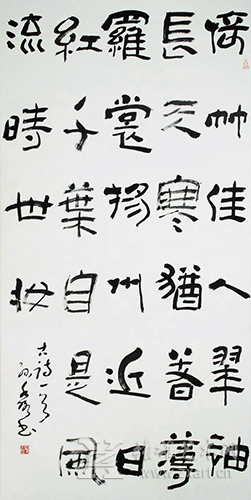 倚竹佳人翠袖
長天寒猶著薄
羅裳揚州近日
紅千葉自是風
流時世妝
古詩一首